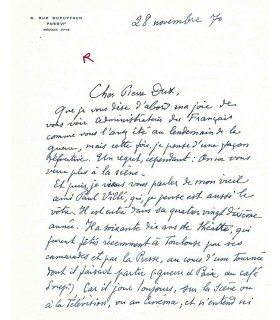 9, RUE DUPUYTREN
PARIS-VIᵉ
28 novembre 70
R
Cher Pierre Dux,
Que je vous dise d'abord ma joie de
vous voir administrateur des Français
comme vous l'avez été au lendemain de la
guerre, mais cette fois, je pense d'une façon
définitive. Un regret, cependant : On ne vous
verra plus à la scène.
Et puis, je viens vous parler de mon vieil
ami Paul Villé, qui, je pense est aussi le
vôtre. Il est entré dans sa quatre vingt dixième
année. Il a soixante dix ans de Théâtre, qui
furent fêtés récemment à Toulouse par ses
camarades et par la Presse, au cours d'une tournée
dont il faisait partie (guerre et Paix, au café
) Car il joue toujours, sur la Scène ou
à la Télévision, ou au Cinéma, et n'entend ni